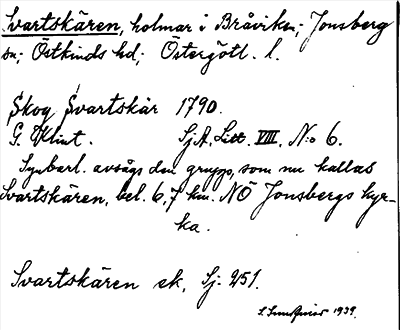 Svartskären, holmar i Bråviken; Jonsberg
sn; Östkinds hd; Östergötl. l.
Skog Svartskär 1790.
G. Klint. SjA. Litt. VIII. N:o 6.
Synbarl. avsågs den grupp, som nu kallas
Svartskären, bel. 6,7 km. NÖ Jonsbergs kyr-
ka.
Svartskären ek, Sj. 251.
1939.